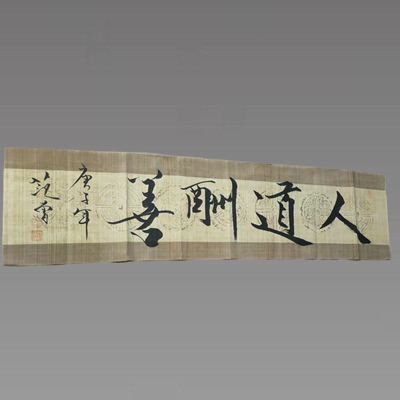 人道酬善
庚子年
范